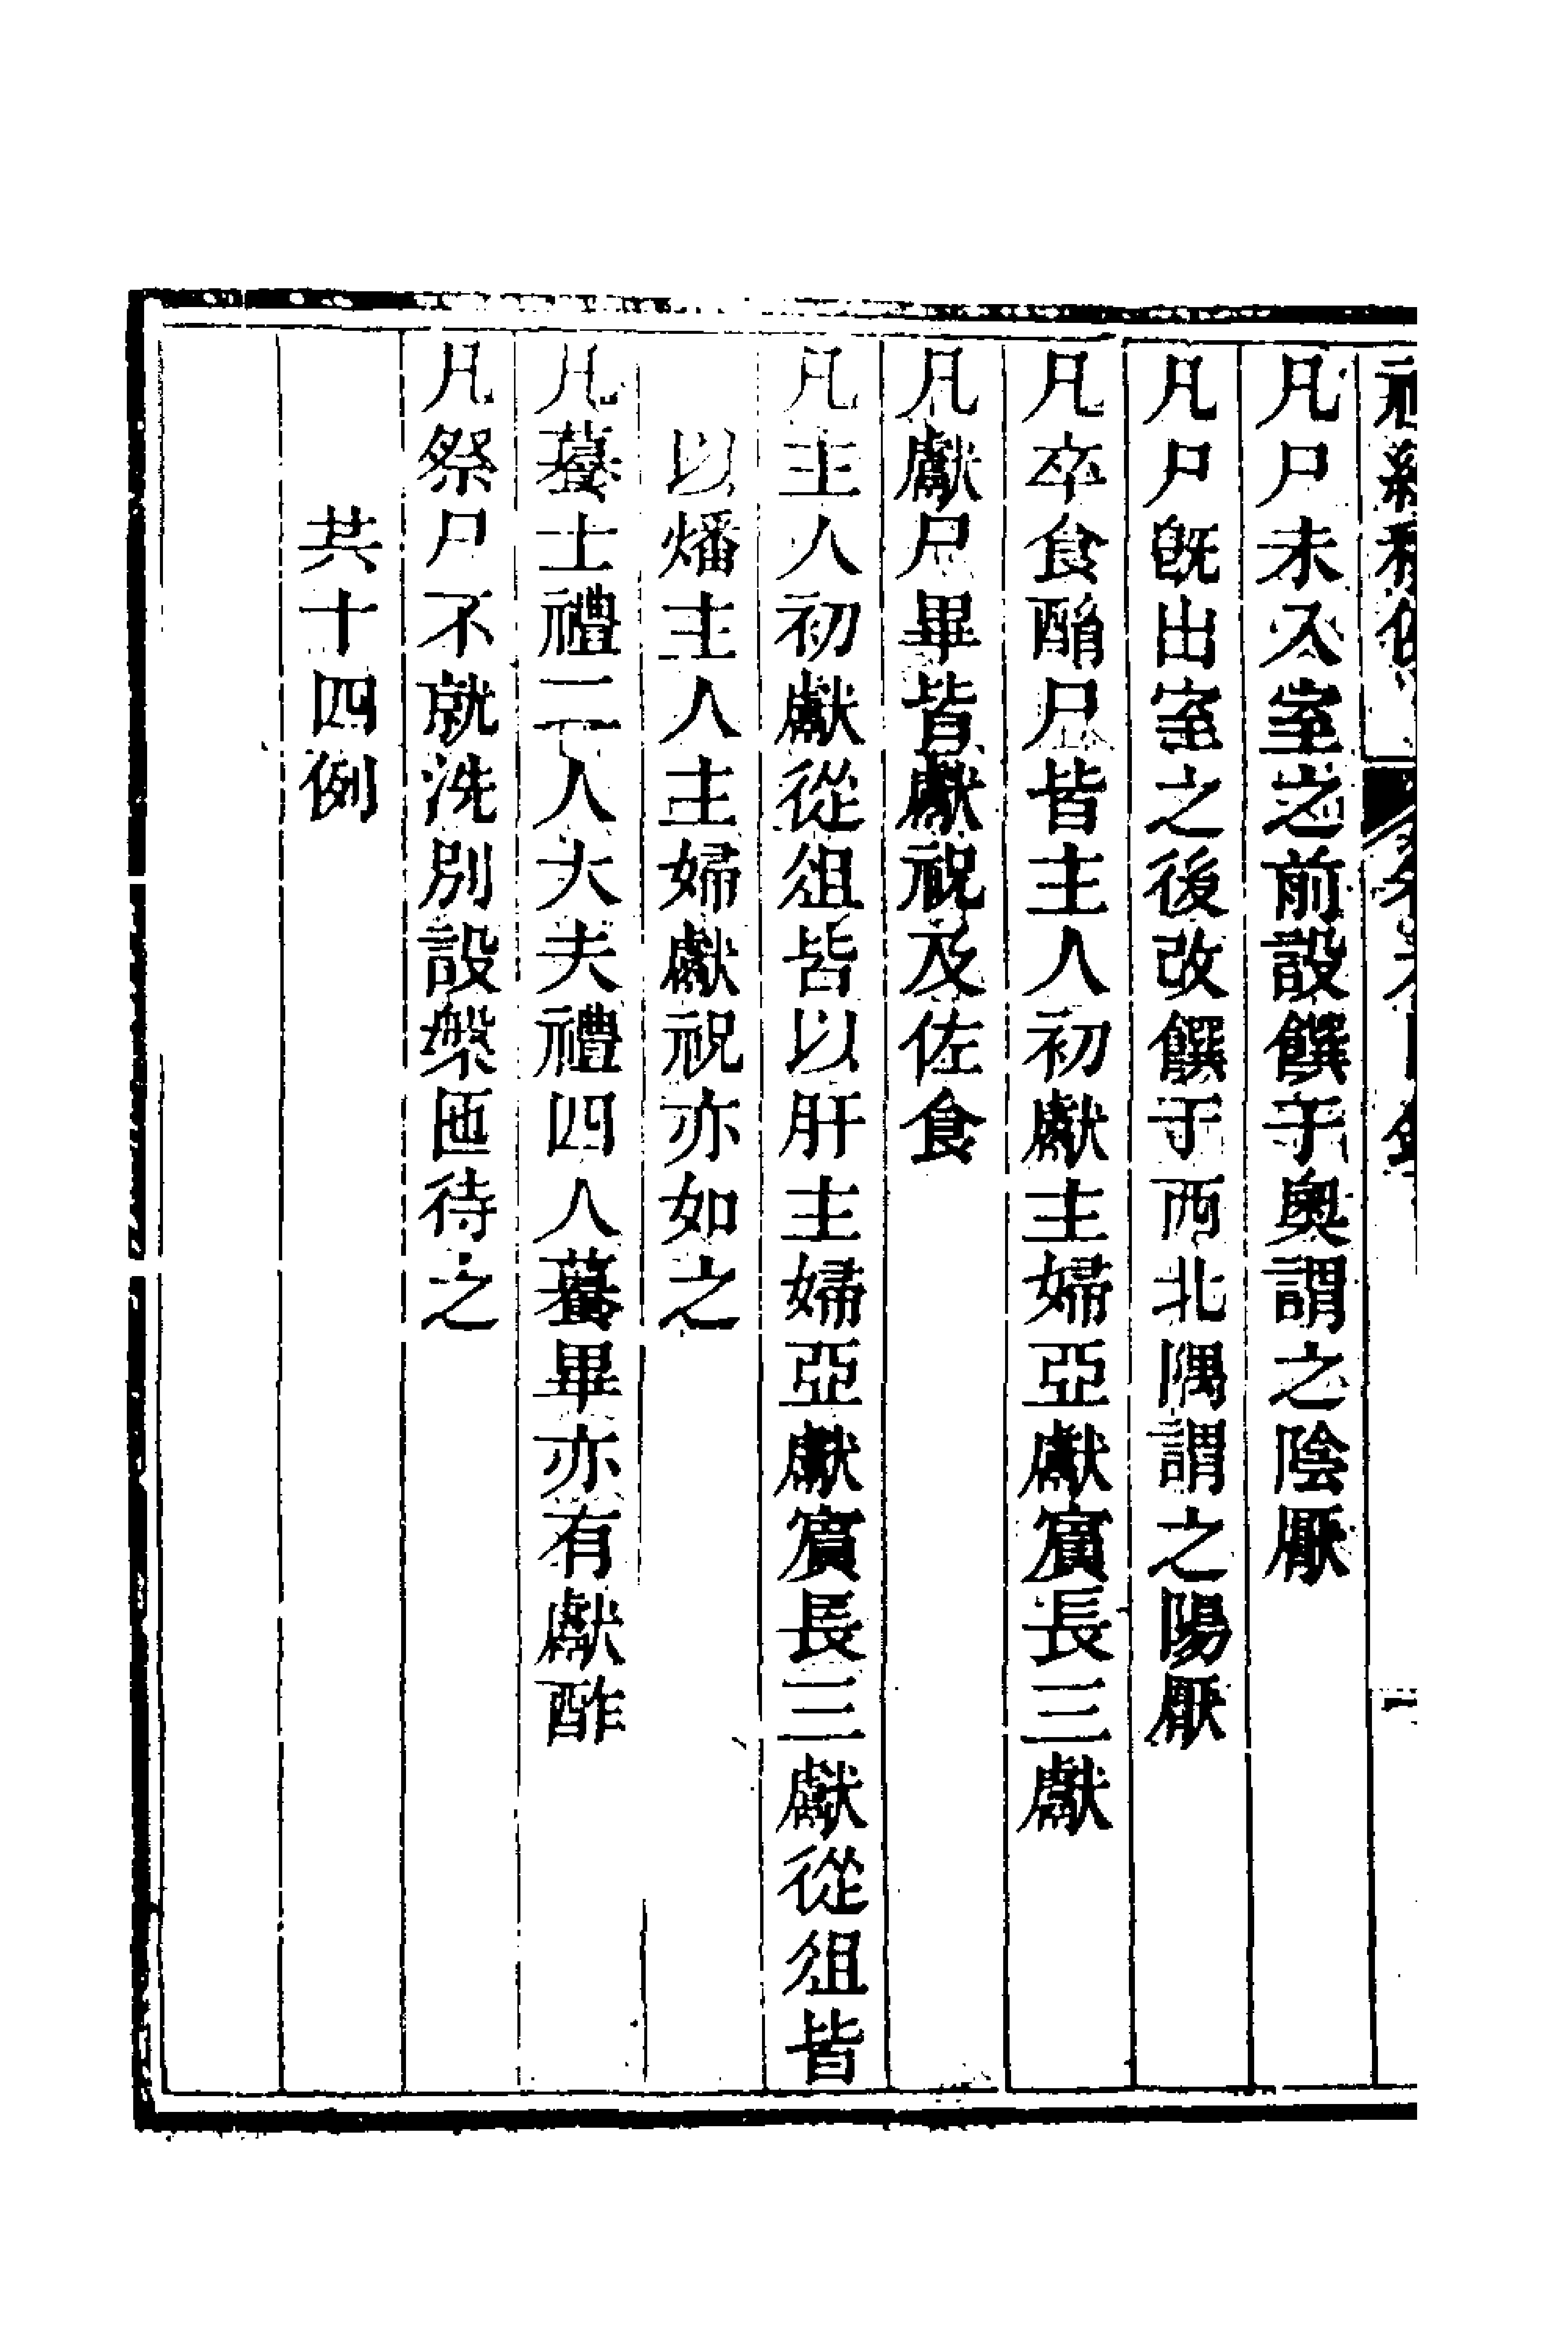 凡尸未入室之前設饌于奧謂之陰厭
凡尸旣出室之後改饌于西北隅謂之陽厭
凡卒食酳尸皆主人初獻主婦亞獻賔長三獻
凡獻尸畢皆獻祝及佐食
凡主人初獻從俎皆以肝主婦亞獻賔長三獻從俎皆
以燔主人主婦獻祝亦如之
凡䕩士禮二人大夫禮四人䕩畢亦有獻酢
凡祭尸不就洗別設槃匜待之
共十四例